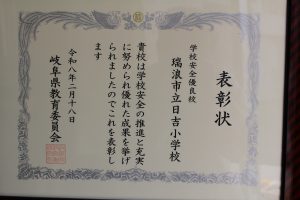 表彰状
学校安全優良校
瑞浪市立日吉小学校
貴校は学校安全の推進と充実
に努められ優れた成果を挙げ
られましたのでこれを表彰し
ます
令和八年二月十八日
岐阜県教育委員会